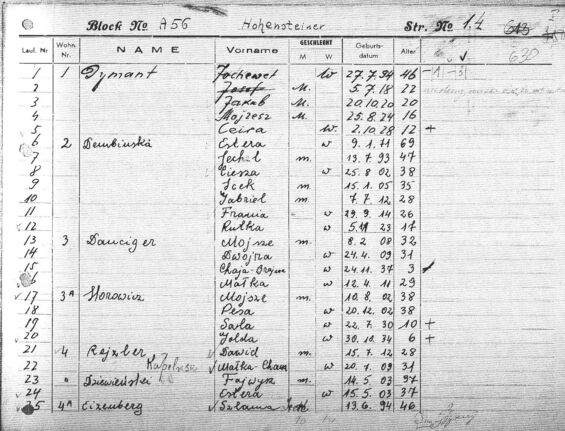 Block No A56 Hohensteiner Str. No 14
Lauf. Nr Wohn. Nr NAME Vorname GESCHLECHT M W Geburtsdatum Alter
1 1 Dymant Jochewet W 27.7.94 46
2 Josef M. 5.7.18 22
3 Jakub M. 20.10.20 20
4 Mojzesz M. 25.8.24 16
5 Ceira W. 2.10.28 12 +
6 2 Dembinska Estera w 9.1.71 69
7 m. 13.7.93 47
8 Ciesza w 25.8.02 38
9 Icek m. 15.1.05 35
10 Gabriel m. 7.7.12 28
11 Frania w 29.9.14 26
12 Rutka w 5.11.23 17
13 3 Danciger Mojsze m. 8.2.08 32
14 Dwojra w 24.4.09 31
15 Chaja w 24.11.37 3
16 Matka w 12.4.11 29
17 3A Horowicz Mojsze m. 10.8.02 38
18 Pesa w 20.12.02 38
19 Sala w 22.7.30 10 +
20 Golda w 30.10.34 6 +
21 4 Rejzler Dawid m. 15.7.12 28
22 Matka-Chana w 20.1.09 31
23 Dziewieński Fajwysz m. 14.5.03 37
24 Estera w 15.5.03 37
25 4A Eizenberg Szlama 13.6.94 46